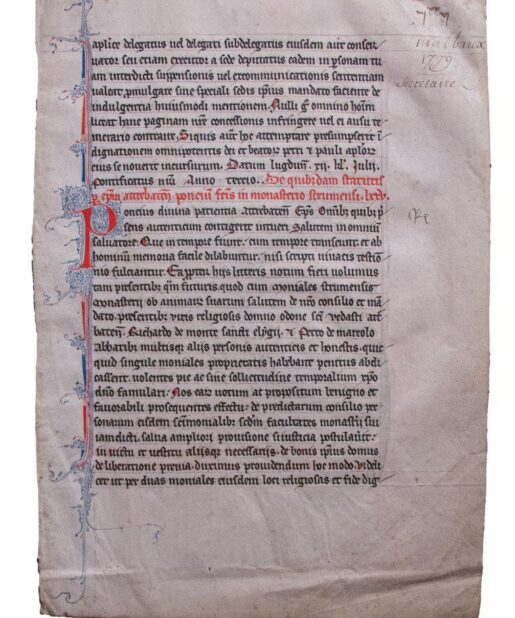 malbaux
1779
Secretaire
aplice delegatus uel delegati subdelegatus eiusdem aut conser
uator seu etiam executor a sede deputatus eadem in psonam tu
am interdicti suspensionis uel excommunicationis sententiam
ualeat pmulgare sine speciali sedis ipius mandato faciente de
indulgentia huiusmodi mentionem. Nulli g omnino homi
liceat hanc paginam nre concessionis infringere uel ei ausu te
merario contraire. Siquis aut hoc attemptare presumpserit i
dignationem omnipotentis dei et beator petri & pauli aplor
eius se nouerit incursurum. Datum lugdun. xij. kl. Julij.
Pontificatus nri Anno tercio.. De quibusdam statutis
p epm attrebaten. poncium fcis in monasterio strumensi. lxxv.
Poncius diuina patientia attrebaten Eps. Omibus quibus p
sens autenticum contigerit intueri. Salutem in omnium
saluatore. Que in tempore fiunt. cum tempore transeunt. et ab
hominum memoria facile dilabuntur. nisi scripti uiuacis testimo
nio fulciantur. Ea ppter hijs litteris notum fieri uolumus
tam presentibus qm futuris. quod cum moniales strumensis
monasterij ob animarum suarum salutem de nro consilio et man
dato. presentibus uiris religiosis domno odone sci vedasti atre
baten. Richardo de monte sancti eligij. & Petro de mareolo
Abbatibus multisque alijs personis autenticis et honestis. quic
quid singule moniales proprietatis habebant penitus abdi
cassent. uolentes pie ac sine sollicitudine temporalium xpo
dno famulari. Nos earum uotum ac propositum benigno et
fauorabili prosequentes effectu. de predictarum consilio per
sonarum eisdem sanctimonialibus secdm facultates monasterij sui
iamdicti. salua ampliori prouisione si iusticia postulauerit.
in uictu et uestitu alijsque necessarijs. de bonis ipius domus
deliberatione preuia. duximus prouidendum hoc modo. videli
cet ut per duas moniales eiusdem loci religiosas et fide dig